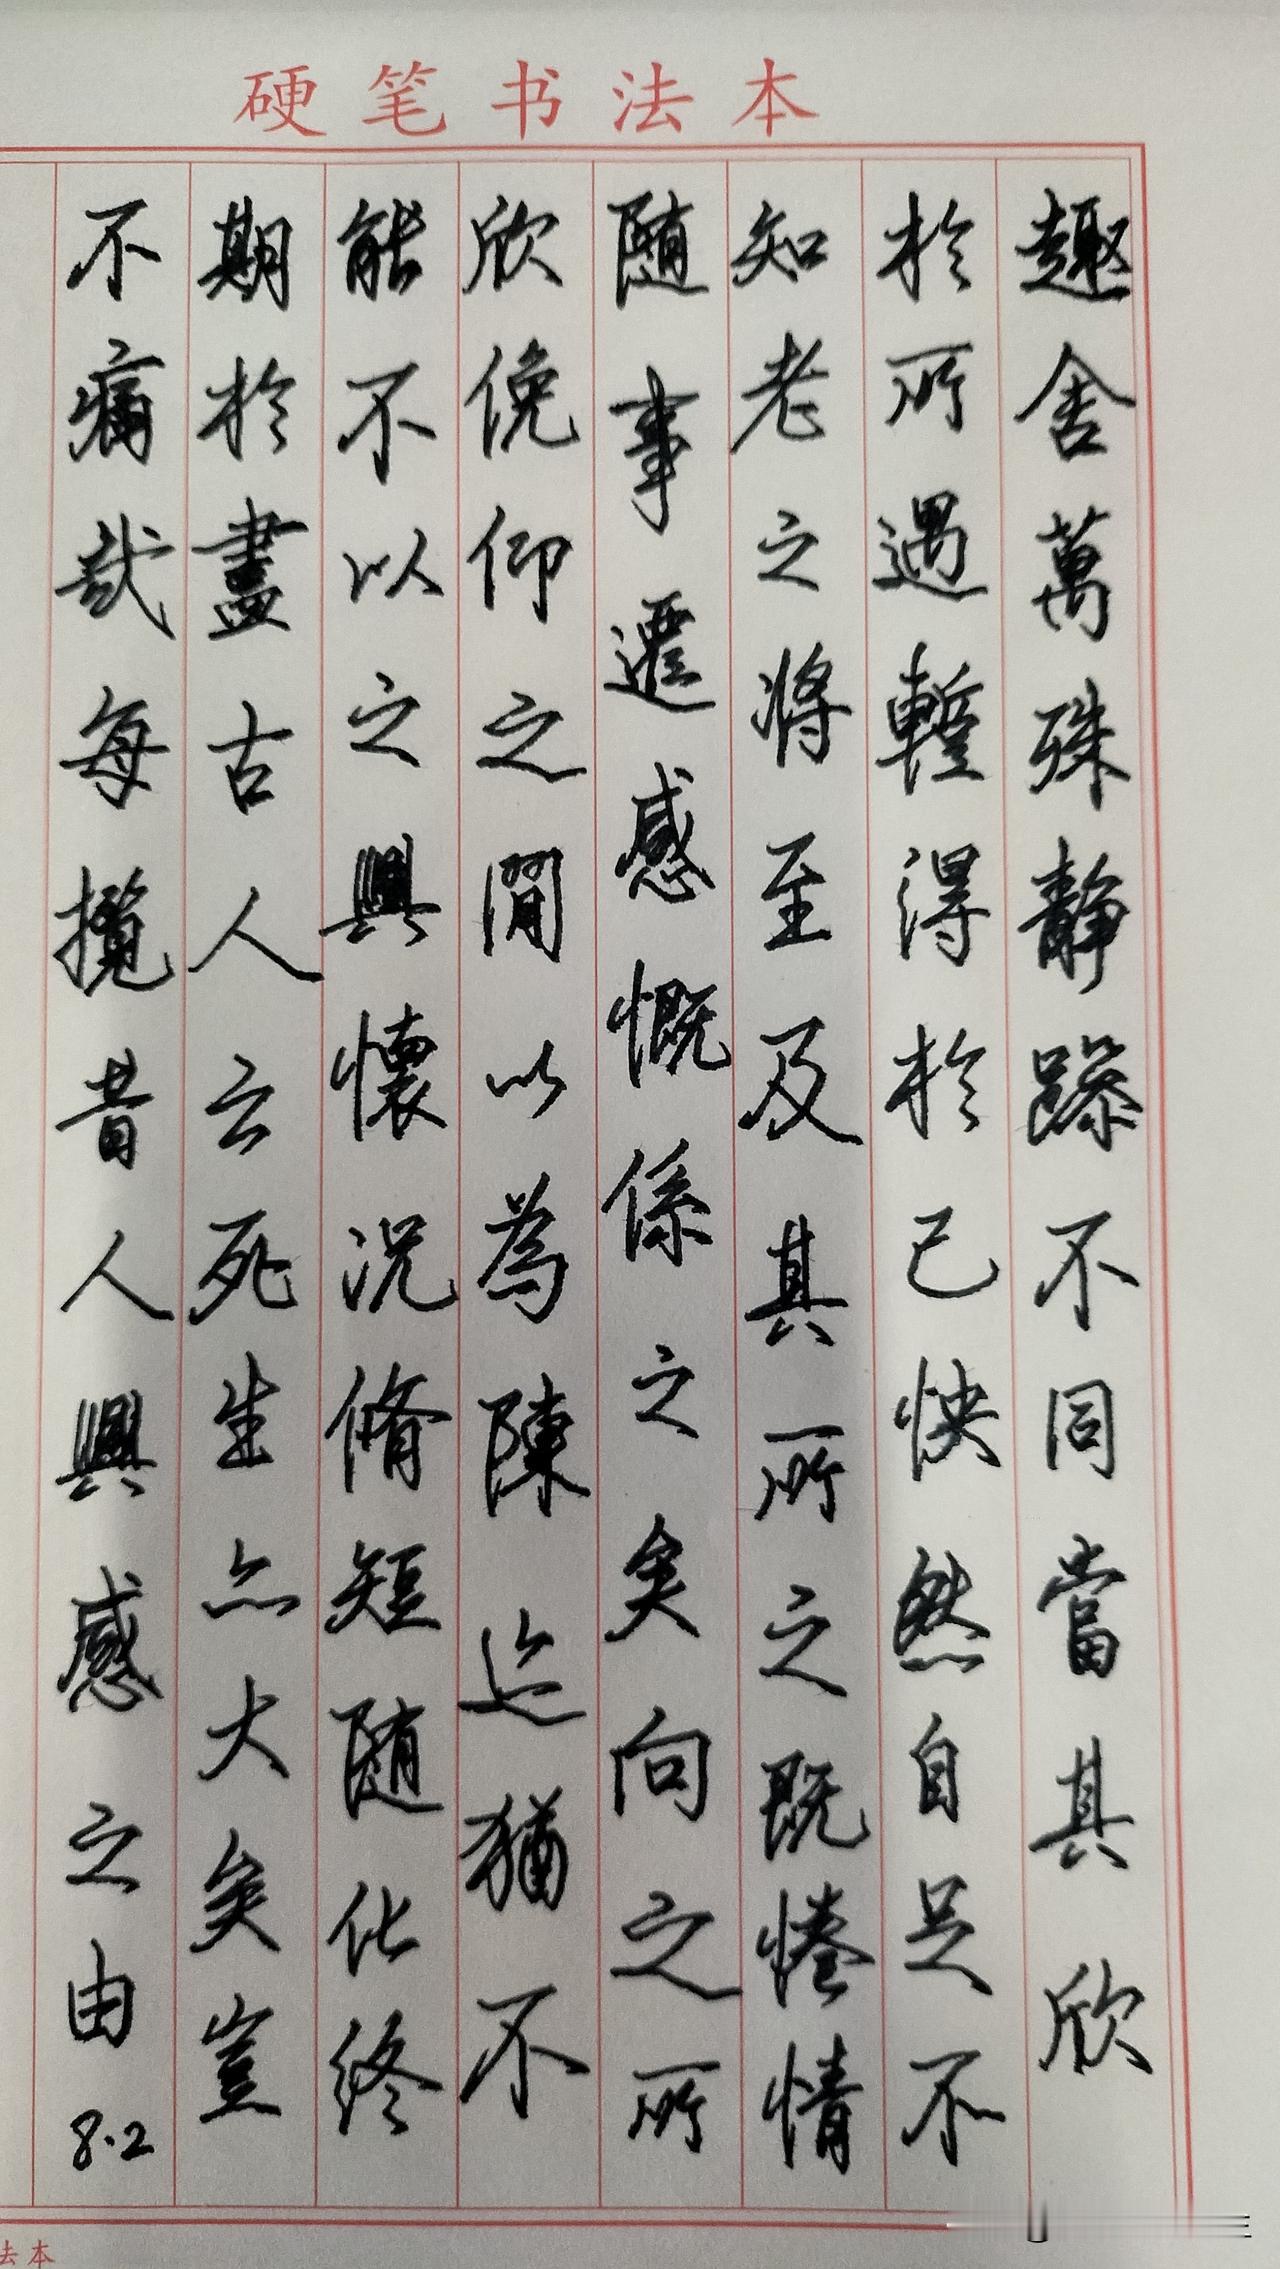 硬笔书法本
趣舍萬殊静躁不同當其欣
於所遇暫得於己怏然自足不
知老之将至及其所之既惓情
随事遷感慨係之矣向之所
欣俛仰之閒以為陳迹猶不
能不以之興懷況脩短随化终
期於盡古人云死生亦大矣豈
不痛哉每攬昔人興感之由
8.2
法本